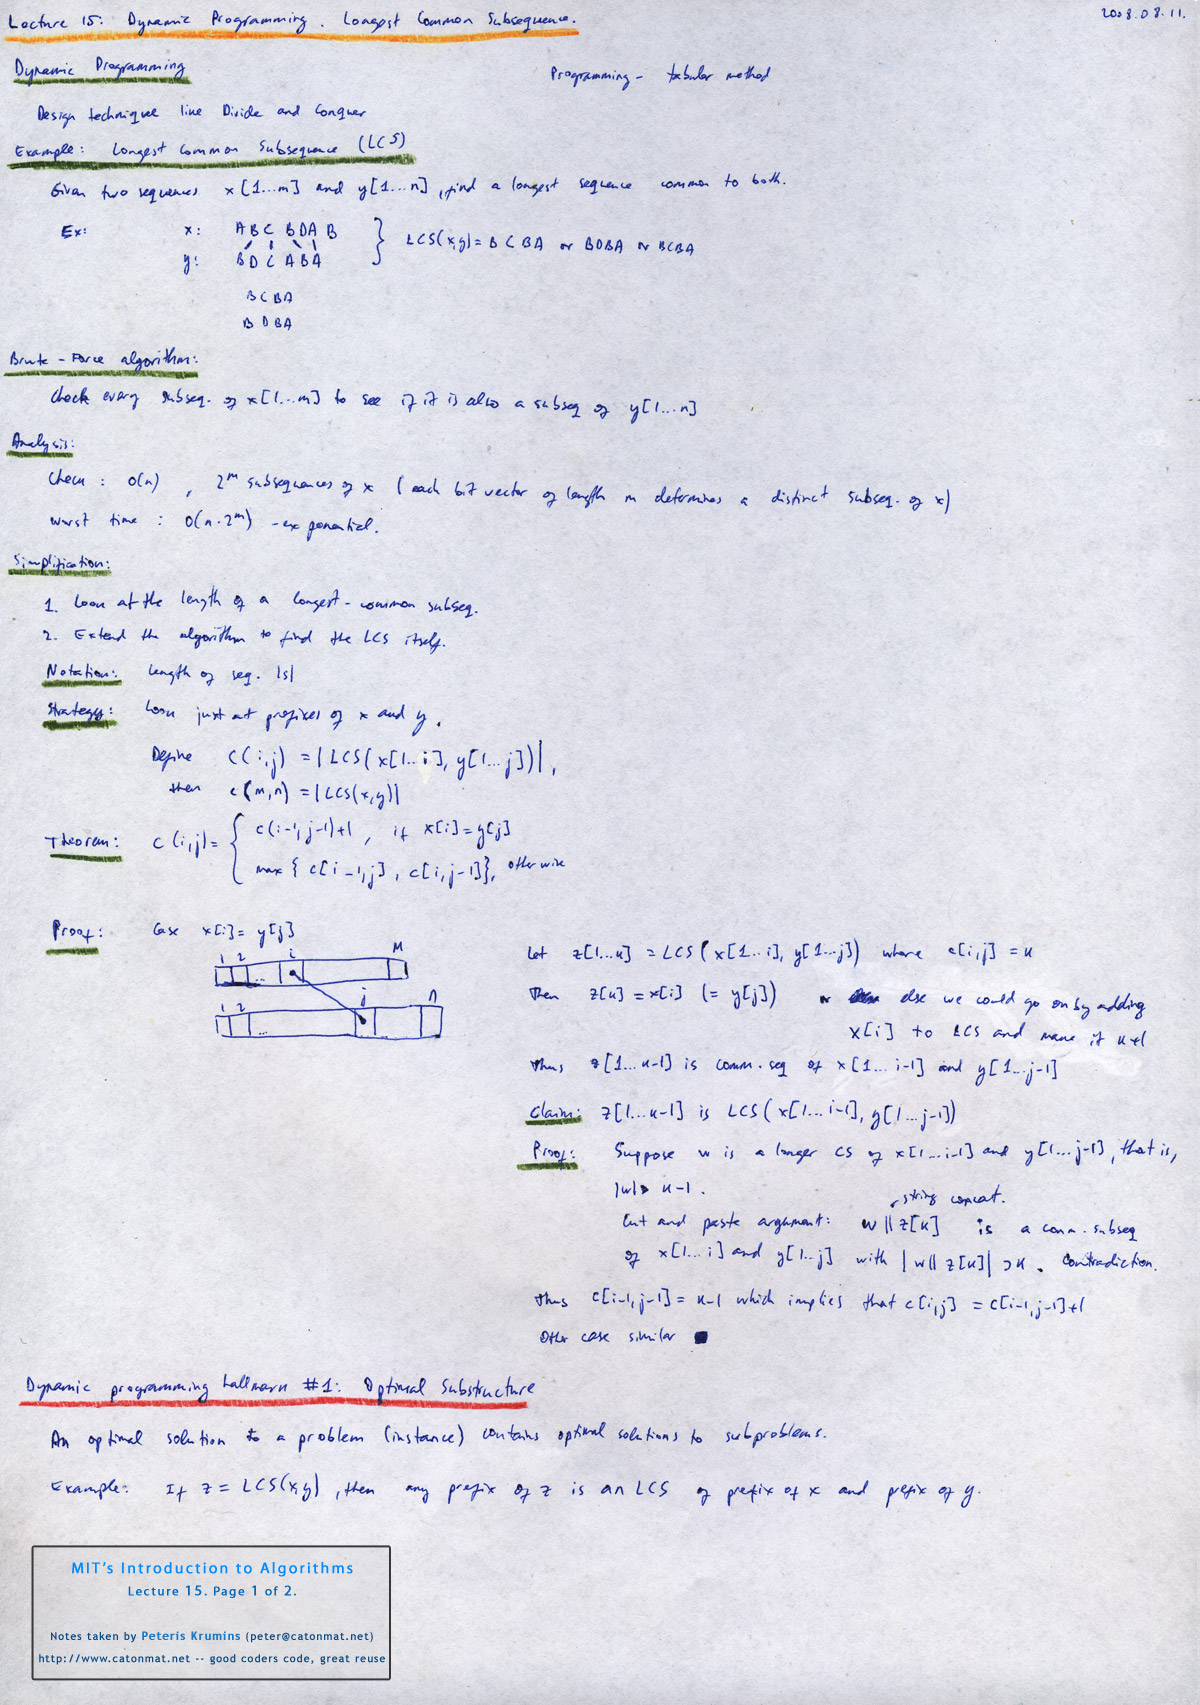 Lecture 15: Dynamic Programming. Longest Common Subsequence.
2008.08.11.
Dynamic Programming
Programming - tabular method
Design technique like Divide and Conquer
Example: Longest Common Subsequence (LCS)
Given two sequences x[1...m] and y[1...n], find a longest sequence common to both.
Ex: x: A B C B D A B } LCS(x,y)= B C B A or B D B A or B C B A
y: B D C A B A
B C B A
B D B A
Brute-Force algorithm:
Check every subseq. of x[1...m] to see if it is also a subseq of y[1...n]
Analysis:
Check: O(n), 2^m subsequences of x (each bit vector of length m determines a distinct subseq. of x)
Worst time: O(n·2^m) - exponential.
Simplification:
1. Look at the length of a longest-common subseq.
2. Extend the algorithm to find the LCS itself.
Notation: length of seq. |s|
Strategy: Look just at prefixes of x and y.
Define c(i,j) = |LCS(x[1...i], y[1...j])|,
then c(m,n) = |LCS(x,y)|
Theorem: c(i,j)= { c(i-1,j-1)+1, if x[i]=y[j]
max{c[i-1,j], c[i,j-1]}, otherwise
Proof: Case x[i]= y[j]
1 2 i M
...
1 2 j n
...
Let z[1...k] = LCS(x[1...i], y[1...j]) where c[i,j] = k
Then z[k]=x[i] (= y[j]) or else we could go on by adding
x[i] to LCS and make it k+1
Thus z[1...k-1] is comm. seq of x[1...i-1] and y[1...j-1]
Claim: z[1...k-1] is LCS(x[1...i-1], y[1...j-1])
Proof: Suppose w is a longer CS of x[1...i-1] and y[1...j-1], that is,
|w|> k-1.
string concat.
Cut and paste argument: w||z[k] is a comm. subseq
of x[1...i] and y[1...j] with |w||z[k]| >k. Contradiction.
Thus c[i-1,j-1]= k-1 which implies that c[i,j] = c[i-1,j-1]+1
Other case similar ■
Dynamic programming hallmark #1: Optimal Substructure
An optimal solution to a problem (instance) contains optimal solutions to subproblems.
Example: If z = LCS(x,y), then any prefix of z is an LCS of prefix of x and prefix of y.
MIT's Introduction to Algorithms
Lecture 15. Page 1 of 2.
Notes taken by Peteris Krumins (peter@catonmat.net)
http://www.catonmat.net -- good coders code, great reuse